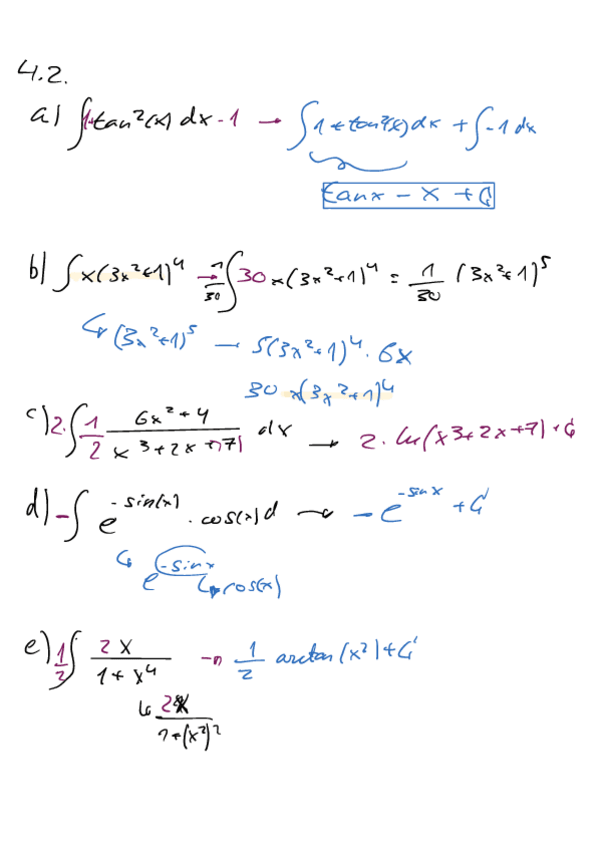 4.2.
a) ∫1+tan²(x) dx - 1 → ∫1+tan²(x)dx + ∫-1 dx
tanx - x + C
b) ∫x(3x²+1)⁴ → 1/30 ∫30x(3x²+1)⁴ = 1/30 (3x²+1)⁵
↳ (3x²+1)⁵ → 5(3x²+1)⁴ · 6x
30x(3x²+1)⁴
c) 2·∫ 1/2 (6x²+4)/(x³+2x+7) dx → 2·ln(x³+2x+7)+C
d) -∫ e^(-sin(x)) · cos(x)d → -e^(-sinx) + C
↳ e^(-sinx) ↳ cos(x)
e) 1/2 ∫ 2x/(1+x⁴) → 1/2 arctan(x²)+C
↳ 2x/(1+(x²)²)